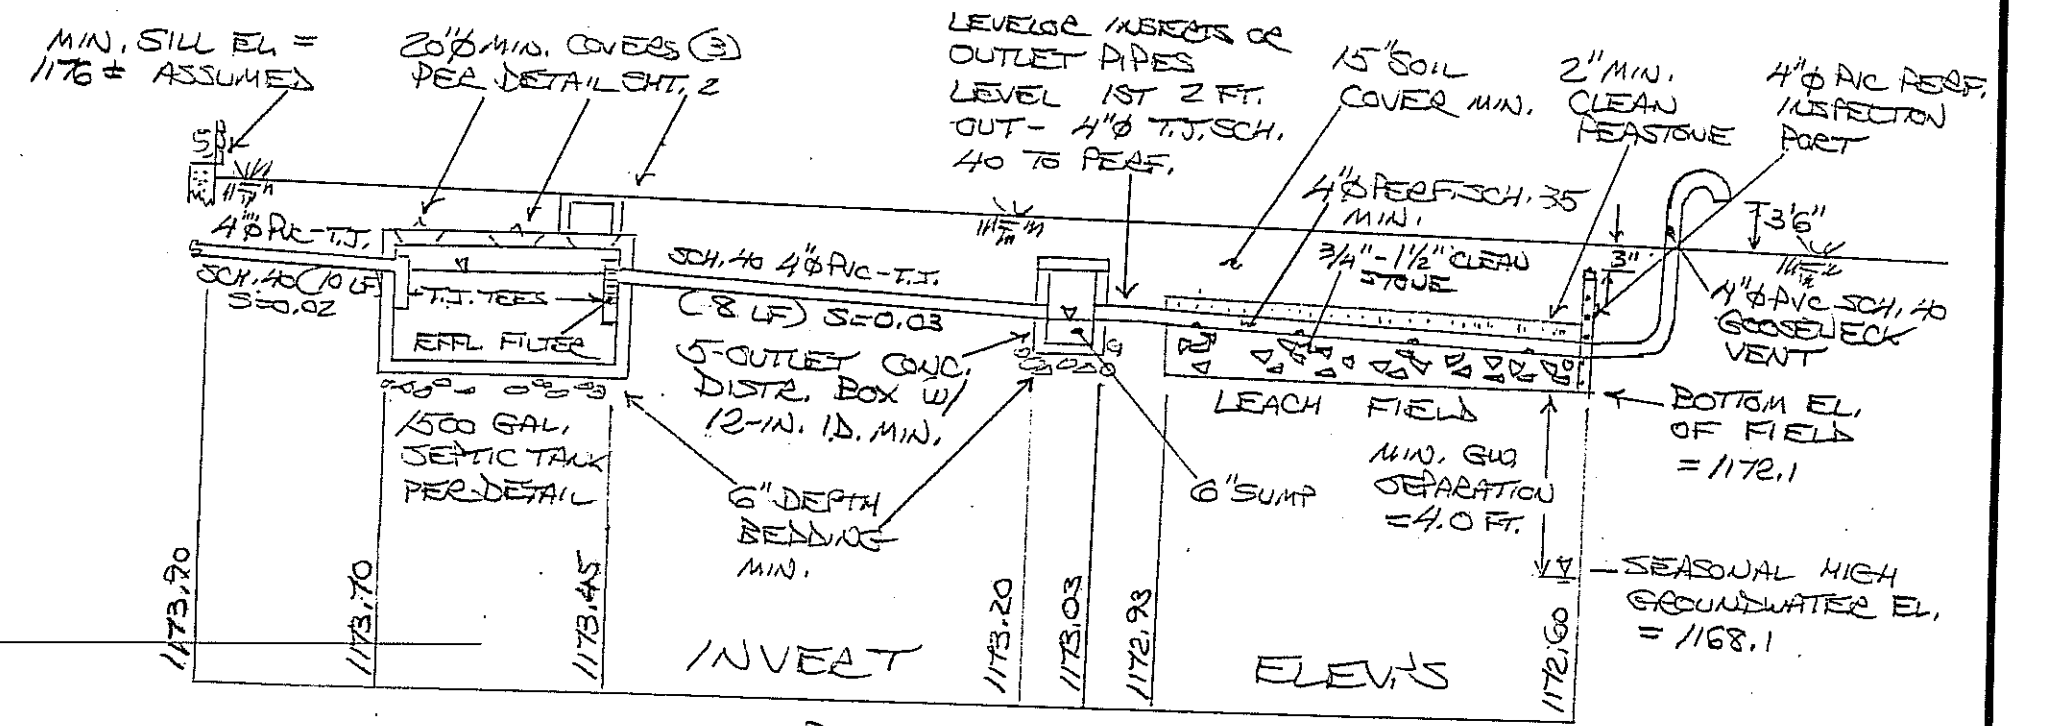 MIN. SILL EL. =
1176 ± ASSUMED
20"Ø MIN. COVERS (3)
PER DETAIL SHT. 2
LEVELOR INSERTS OR
OUTLET PIPES
LEVEL 1ST 2 FT.
OUT - 4"Ø T.J. SCH.
40 TO PERF.
15" SOIL
COVER MIN.
2" MIN.
CLEAN
PEASTONE
4"Ø PVC PERF.
INSPECTION
PORT
4"Ø PVC-T.J.
SCH. 40 (10 LF)
S=0.02
T.J. TEES
EFFL FILTER
SCH. 40 4"Ø PVC-T.J.
(8 LF) S=0.03
4"Ø PERF. SCH. 35
MIN.
3/4"-1 1/2" CLEAN
STONE
3'6"
3"
4"Ø PVC SCH. 40
GOOSENECK
VENT
1500 GAL.
SEPTIC TANK
PER DETAIL
5-OUTLET CONC.
DISTR. BOX W/
12-IN. I.D. MIN.
6" DEPTH
BEDDING
MIN.
6" SUMP
LEACH FIELD
MIN. GW
SEPARATION
= 4.0 FT.
BOTTOM EL.
OF FIELD
= 1172.1
SEASONAL HIGH
GROUNDWATER EL.
= 1168.1
1173.90
1173.70
1173.45
1173.20
1173.03
1172.93
1172.60
INVERT ELEV.'S